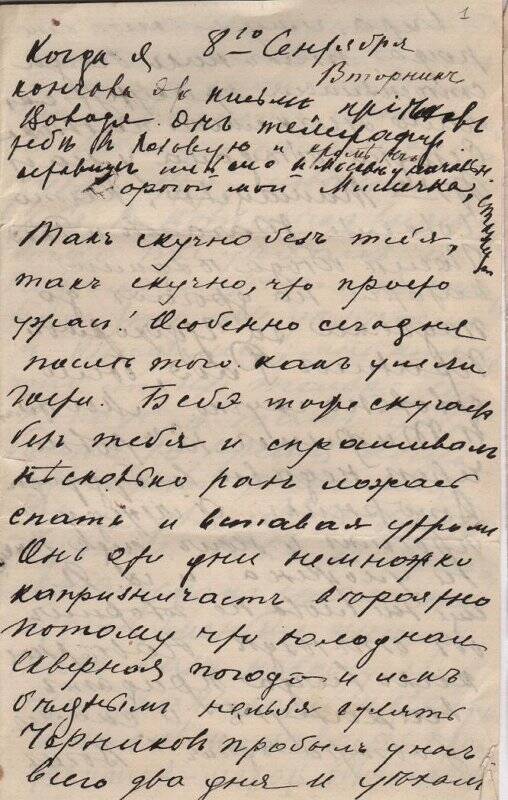 1
8го Сентября
Вторникъ
Когда я
кончова два письма
Володя. Онъ телеграфир
тебѣ в и
письмо и
Дорогой мой Милочка,
Такъ скучно безъ тебя,
такъ скучно, что просто
ужас! Особенно сегодня
послѣ того какъ уѣхали
Гости. Бебя тоже скучает
без тебя и спрашивалъ
нѣсколько разъ ложась
спать и вставая утромъ
Онъ эти дни немножко
капризничаетъ вѣроятно
потому что холодная
скверная погода и имъ
бѣднымъ нельзя гулять
Черниковъ пробылъ у насъ
всего два дня и уѣхалъ